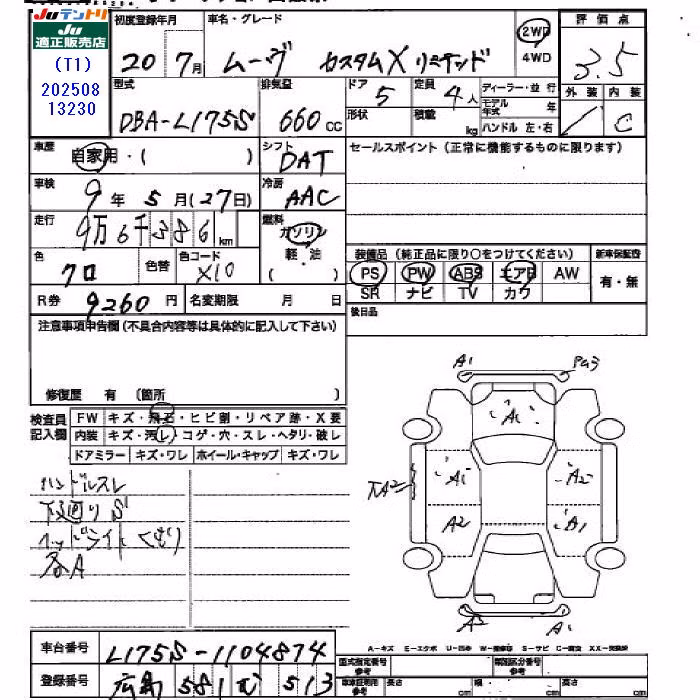 Ju テントリ
Ju
適正販売店
(T1)
202508
13230
初度登録年月
20 7月
車名・グレード
ムーヴ カスタムX リミテッド
2WD
4WD
評価点
3.5
外装 内装
C
型式
DBA-L175S
排気量
660 cc
ドア
5
形状
定員
4人
積載
kg
ディーラー・並行
モデル年式 年
ハンドル 左・右
車歴
自家用・( )
シフト
DAT
セールスポイント(正常に機能するものに限ります)
車検
9年 5月(27日)
冷房
AAC
走行
9万6千386km
燃料
ガソリン
軽・油
( )
色
クロ
色替
色コード
X10
装備品(純正品に限り○をつけてください)
新車保証書
PS PW ABS エアB AW
有・無
SR ナビ TV カワ
R券
9260円
名変期限 月 日
後日品
注意事項申告欄(不具合内容等は具体的に記入して下さい)
修復歴 有 (箇所 )
検査員
記入欄
FW キズ・飛石・ヒビ割・リペア跡・X要
内装 キズ・汚レ・コゲ・穴・スレ・ヘタリ・破レ
ドアミラー キズ・ワレ ホイール・キャップ キズ・ワレ
ハンドルスレ
下廻りS
ヘッドライトくもり
各A
A1
A1
A1
A2
A2
A2
A1
A1
A-キズ E-エクボ U-凹み
S-サビ C-腐食
車台番号
L175S-1104874
登録番号
広島 581 む 513
型式指定番号
参考
類別区分番号
参考
長さ cm 幅 cm 高さ cm